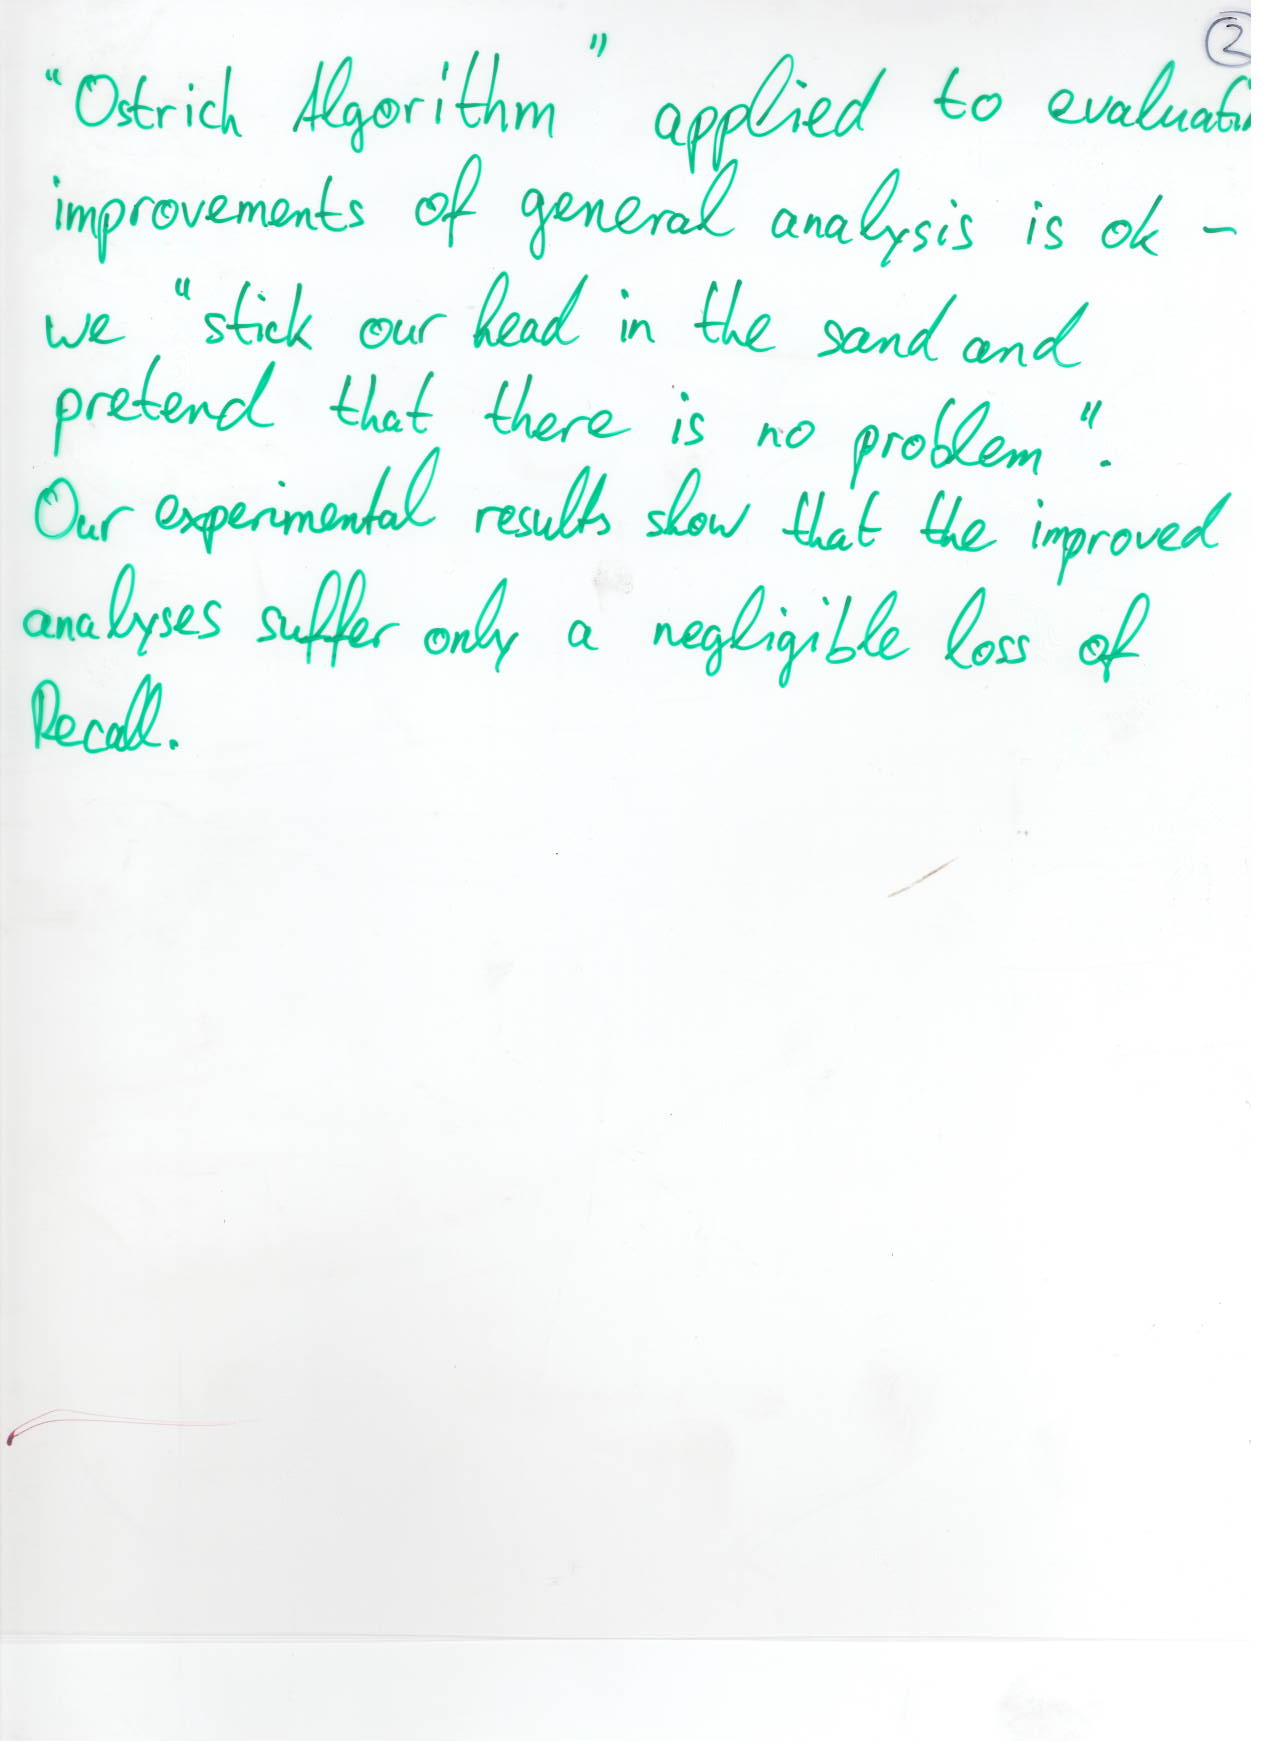 2
"Ostrich Algorithm" applied to evaluatin
improvements of general analysis is ok –
we "stick our head in the sand and
pretend that there is no problem".
Our experimental results show that the improved
analyses suffer only a negligible loss of
Recall.